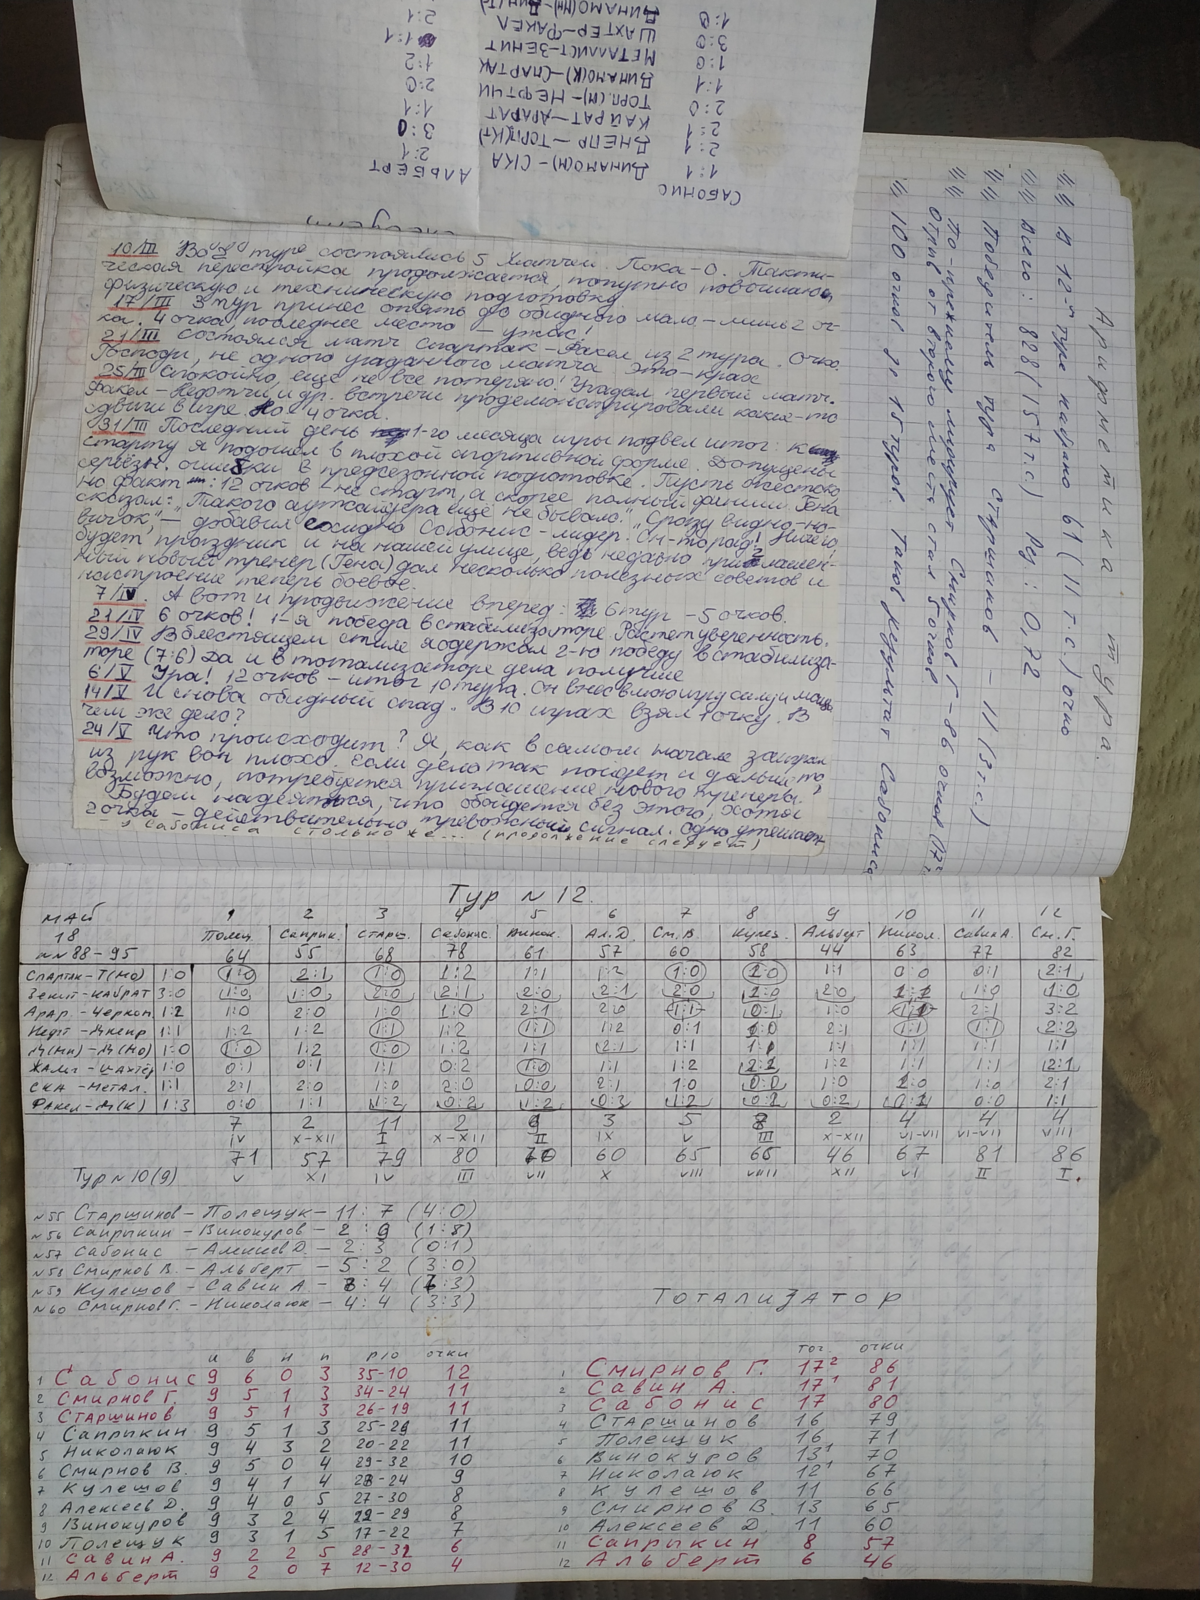 САБОНИС АЛЬБЕРТ
1:1 ДИНАМО(М)-СКА 2:1
2:1 ДНЕПР-ТОРП(КТ) 3:0
2:1 КАЙРАТ-АРАРАТ 1:1
2:0 ТОРП.(М)-НЕФТЧИ 2:0
1:1 ДИНАМО(К)-СПАРТАК 1:2
1:0 МЕТАЛЛИСТ-ЗЕНИТ 1:1
3:0 ШАХТЕР-ФАКЕЛ 2:1
1:0
10/III Во 2ом туре состоялись 5 матчей. Пока-0. Такти-
ческая перестройка продолжается, попутно повышаю
физическую и техническую подготовку
17/III 3 тур принес опять до обидного мало - лишь 2 оч-
ка. 4 очка последнее место - ужас!
21/III Состоялся матч Спартак-Факел из 2 тура. Очко.
Господи, не одного угаданного матча. Это-крах
25/III Спокойно, еще не все потеряно! Угадал первый матч.
Факел-Нефтчи и др. встречи продемонстрировали какие-то
сдвиги в игре. Но 4 очка.
31/III Последний день 1-го месяца игры подвел итог: к
старту я подошел в плохой спортивной форме. Допущены
серьёзн. ошибки в предсезонной подготовке. Пусть жестоко,
но факт: 12 очков - не старт, а скорее полный финиш. Гена
сказал: „Такого аутсайдера еще не бывало." „Сразу видно-но-
вичок", - добавил Сабонис-лидер. Он-то рад! Ничего
будет праздник и на нашей улице, ведь недавно приглашен-
ный новый тренер (Гена) дал несколько полезных советов и
настроение теперь боевое.
7/IV. А вот и продвижение вперед: 6 тур - 5 очков.
21/IV 6 очков! 1-я победа в стабилизаторе. Растет уверенность.
29/IV В блестящем стиле я одержал 2-ю победу в стабилиза-
торе (7:6) Да и в тотализаторе дела получше
6/V Ура! 12 очков - итог 10 тура. Он внес в мою игру
14/V И снова обидный спад. В 10 играх взял 1 очку. В
чем же дело?
24/V Что происходит? Я, как в самом начале заиграл
из рук вон плохо. Если дела так пойдет и дальше, то,
возможно, потребуется приглашение нового тренера.
Будем надеяться, что обойдется без этого, хотя
2 очка - действительно тревожный сигнал. Одно утешает
у Сабониса столько же... (продолжение следует)
Арифметика тура.
В 12-м туре набрано 61 (11 т.с.) очко
Всего: 828 (157 т.с.) Рез.: 0,72
Победитель тура Старшинов - 11 (3 т.с.)
По-прежнему лидирует Смирнов Г - 86 очков (17²
Отрыв от второго места стал 5 очков
100 очков за 15 туров таков результат Сабониса
Тур N 12.
МАЙ 1 2 3 4 5 6 7 8 9 10 11 12
18 Полещ. Саприк. Старш. Сабонис. Винок. Ал.Д. См.В. Кулеш. Альберт Никол. Савин А. См.Г.
NN 88-95 64 55 68 78 61 57 60 58 44 63 77 82
Спартак-Т(МО) 1:0 1:0 2:1 1:0 1:2 1:1 1:2 1:0 1:0 1:1 0:0 0:1 2:1
Зенит-Кайрат 3:0 1:0 1:0 2:0 2:1 2:0 2:1 2:0 1:0 2:0 1:1 1:0 1:0
Арар.-Черном 1:2 1:0 2:0 1:0 1:0 2:1 2:0 1:1 0:1 1:0 1:1 2:1 3:2
Нефт-Днепр 1:1 1:2 1:2 1:1 1:2 1:1 1:2 0:1 1:0 2:1 1:1 1:1 2:2
Д(Мн)-Д(Мо) 1:0 1:0 1:2 1:0 1:2 1:1 2:1 1:1 1:1 1:1 1:1 1:1 1:1
Жальг-Шахтёр 1:0 0:1 0:1 1:1 0:2 1:0 1:1 1:2 2:1 1:2 1:1 1:1 2:1
СКА-Метал. 1:1 2:1 2:0 1:0 2:0 0:0 2:1 1:0 0:0 1:0 2:0 1:0 2:1
Факел-Д(К) 1:3 0:0 1:1 1:2 0:2 1:2 0:3 1:2 0:2 0:2 0:1 0:0 1:1
7 2 11 2 9 3 5 8 2 4 4 4
IV X-XII I X-XII II IX V III X-XII VI-VII VI-VII VIII
71 57 79 80 70 60 65 66 46 67 81 86
Тур N 10(9) V XI IV III VII X VIII VIIII XII VI II I.
N55 Старшинов - Полещук - 11:7 (4:0)
N56 Саприкин - Винокуров - 2:9 (1:8)
N57 Сабонис - Алексеев Д. - 2:3 (0:1)
N58 Смирнов В. - Альберт - 5:2 (3:0)
N59 Кулешов - Савин А - 8:4 (:3)
N60 Смирнов Г. - Николаюк - 4:4 (3:3)
ТОТАЛИЗАТОР
и в н п р/о очки
1 Сабонис 9 6 0 3 35-10 12
2 Смирнов Г. 9 5 1 3 34-24 11
3 Старшинов 9 5 1 3 26-19 11
4 Саприкин 9 5 1 3 25-26 11
5 Николаюк 9 4 3 2 20-22 11
6 Смирнов В. 9 5 0 4 29-32 10
7 Кулешов 9 4 1 4 28-24 9
8 Алексеев Д. 9 4 0 5 27-30 8
9 Винокуров 9 3 2 4 29-29 8
10 Полещук 9 3 1 5 17-22 7
11 Савин А. 9 2 2 5 28-32 6
12 Альберт 9 2 0 7 12-30 4
тог очки
1 Смирнов Г. 17² 86
2 Савин А. 17¹ 81
3 Сабонис 17 80
4 Старшинов 16 79
5 Полещук 16 71
6 Винокуров 13¹ 70
7 Николаюк 12¹ 67
8 Кулешов 11 66
9 Смирнов В. 13 65
10 Алексеев Д. 11 60
11 Саприкин 8 57
12 Альберт 6 46